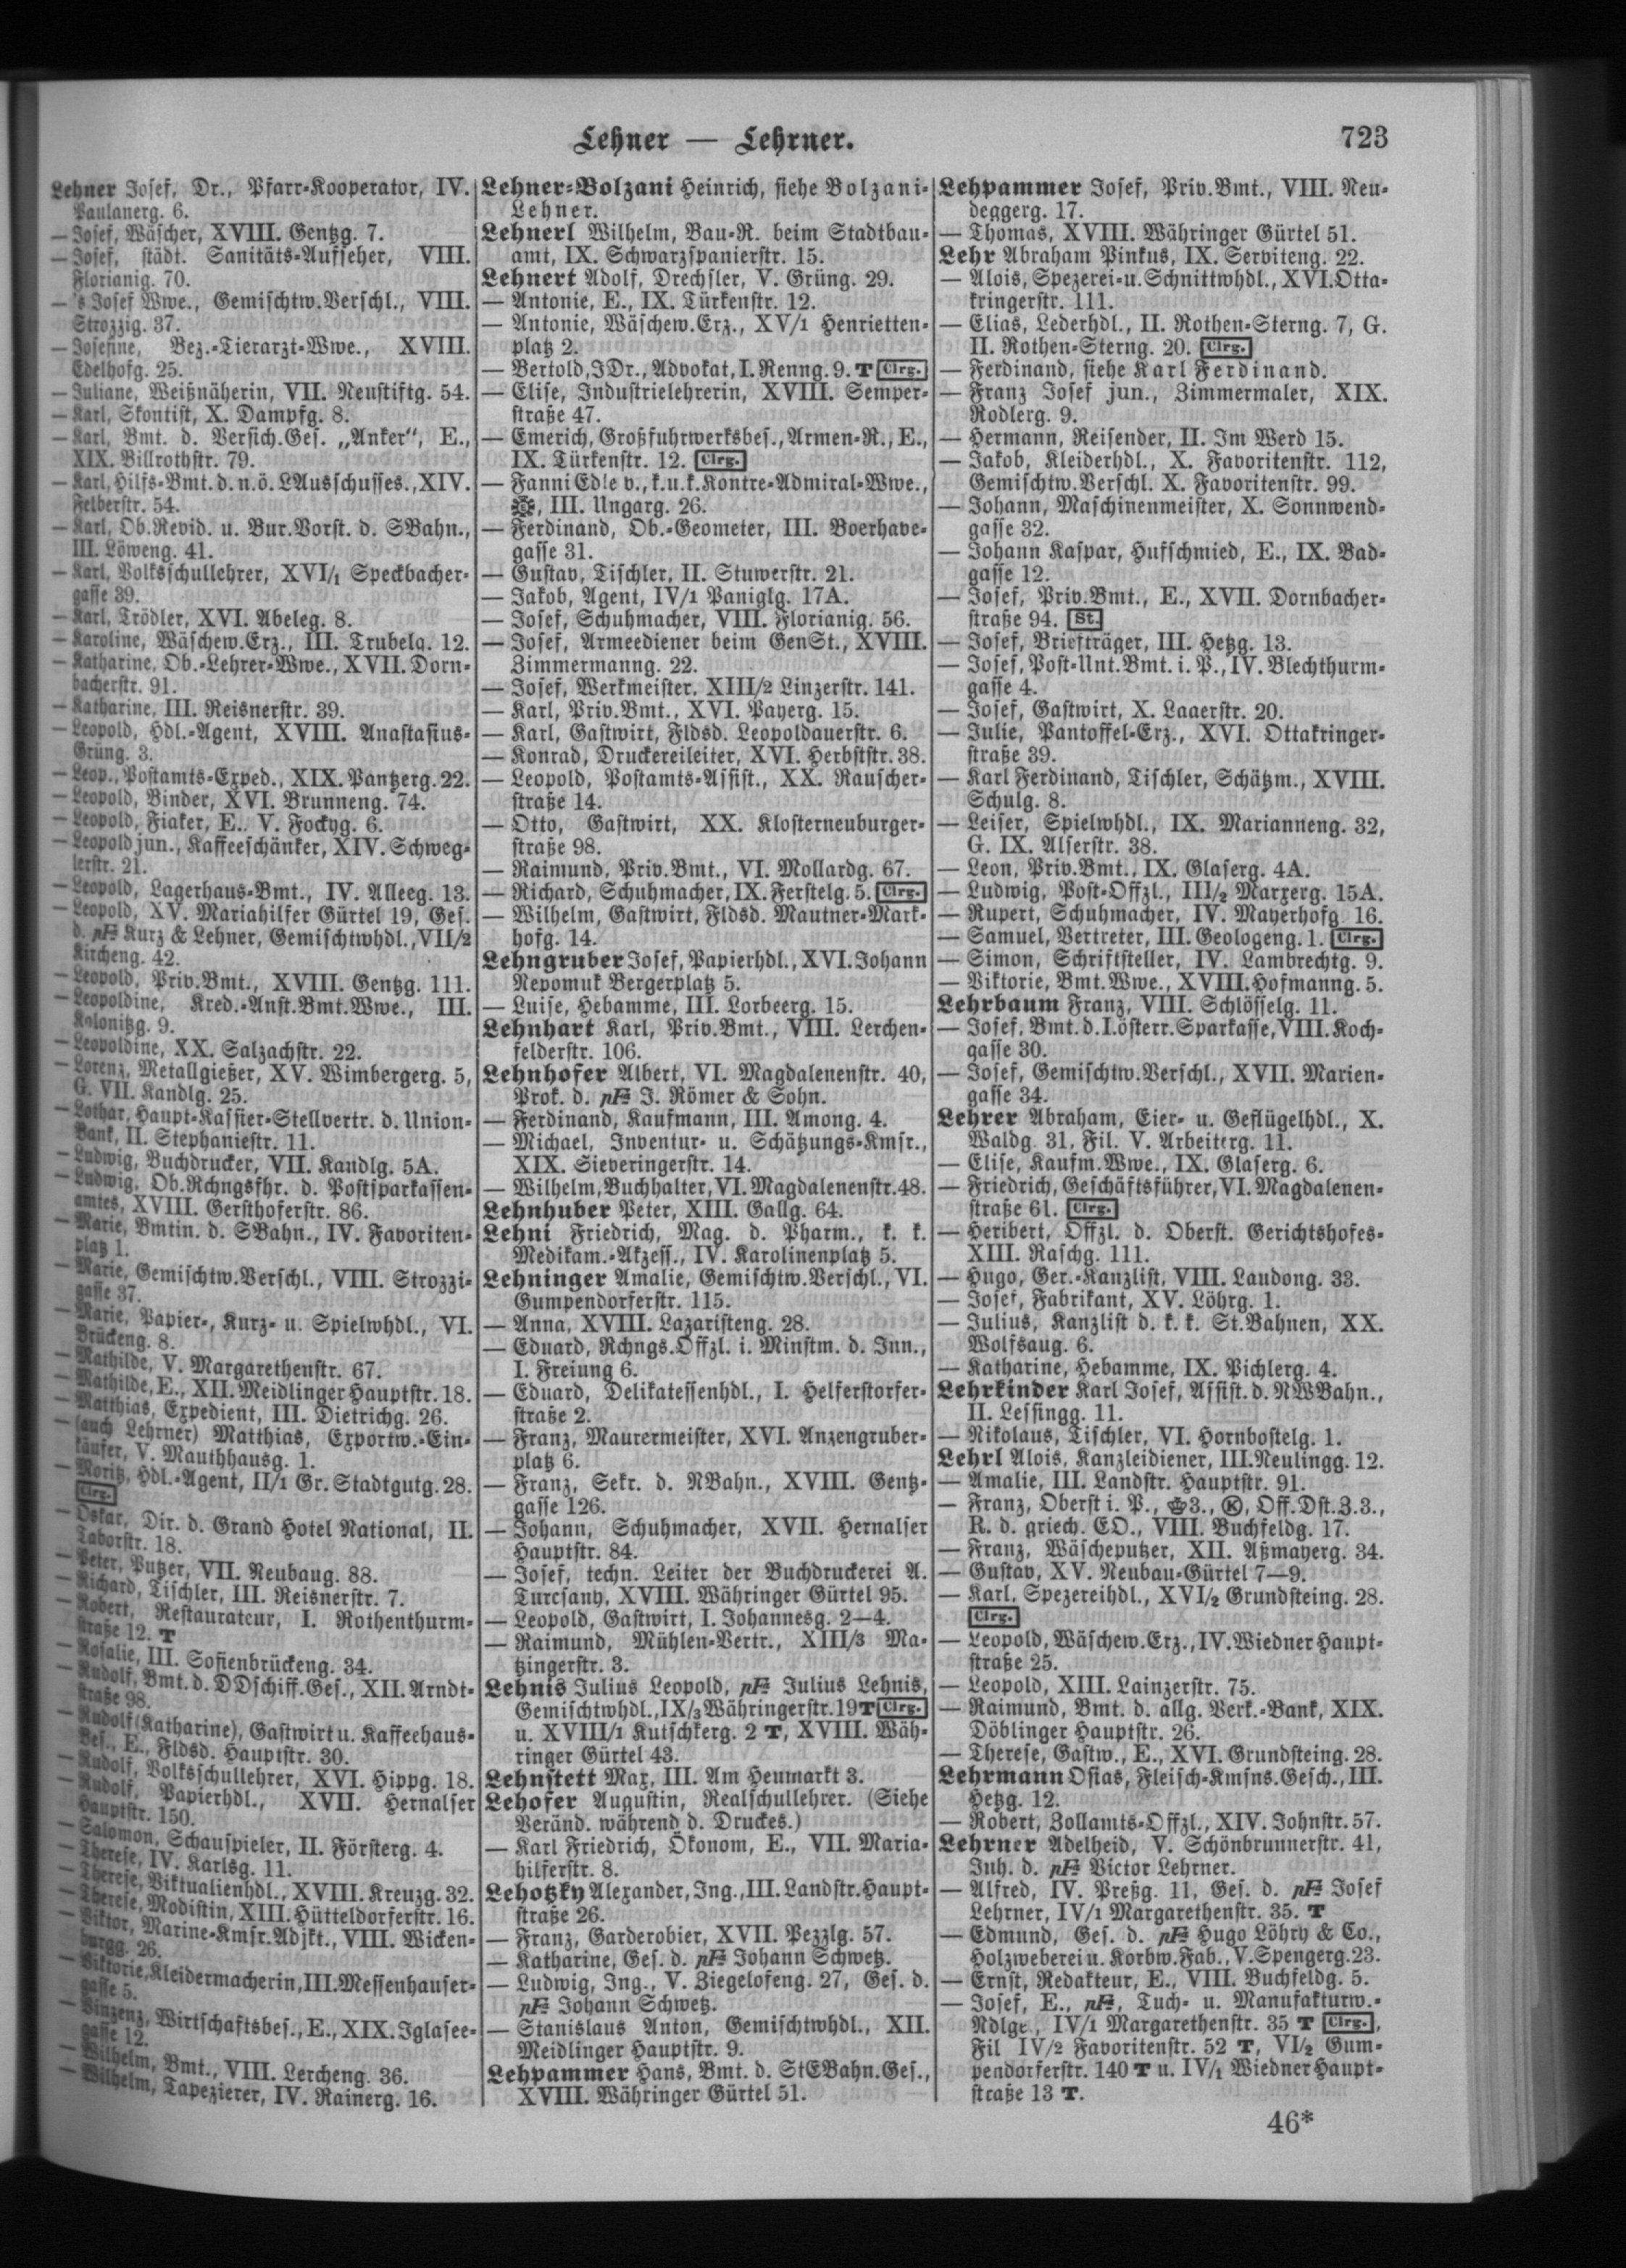 Lehner — Lehrner.
723
Lehner Josef, Dr., Pfarr-Kooperator, IV.
Paulanerg. 6.
— Josef, Wäscher, XVIII. Gentzg. 7.
— Josef, städt. Sanitäts-Aufseher, VIII.
Florianig. 70.
— 's Josef Wwe., Gemischtw.Verschl., VIII.
Strozzig. 37.
— Josefine, Bez.-Tierarzt-Wwe., XVIII.
Edelhofg. 25.
— Juliane, Weißnäherin, VII. Neustiftg. 54.
— Karl, Skontist, X. Dampfg. 8.
— Karl, Bmt. d. Versich.Ges. „Anker“, E.,
XIX. Billrothstr. 79.
— Karl, Hilfs-Bmt. d. n.ö. LAusschusses., XIV.
Felberstr. 54.
— Karl, Ob.Revid. u. Bur.Vorst. d. SBahn.,
III. Löweng. 41.
— Karl, Volksschullehrer, XVI/1 Speckbacher-
gasse 39.
— Karl, Trödler, XVI. Abeleg. 8.
— Karoline, Wäschew.Erz., III. Trubelg. 12.
— Katharine, Ob.-Lehrer-Wwe., XVII. Dorn-
bacherstr. 91.
— Katharine, III. Reisnerstr. 39.
— Leopold, Hdl.-Agent, XVIII. Anastasius-
Grüng. 3.
— Leop., Postamts-Exped., XIX. Pantzerg. 22.
— Leopold, Binder, XVI. Brunneng. 74.
— Leopold, Fiaker, E.. V. Fockyg. 6.
— Leopold jun., Kaffeeschänker, XIV. Schweg-
lerstr. 21.
— Leopold, Lagerhaus-Bmt., IV. Alleeg. 13.
— Leopold, XV. Mariahilfer Gürtel 19, Ges.
d. pF Kurz & Lehner, Gemischtwhdl., VII/2
Kircheng. 42.
— Leopold, Priv.Bmt., XVIII. Gentzg. 111.
— Leopoldine, Kred.-Anst.Bmt.Wwe., III.
Kolonitzg. 9.
— Leopoldine, XX. Salzachstr. 22.
— Lorenz, Metallgießer, XV. Wimbergerg. 5,
G. VII. Kandlg. 25.
— Lothar, Haupt-Kassier-Stellvertr. d. Union-
Bank, II. Stephaniestr. 11.
— Ludwig, Buchdrucker, VII. Kandlg. 5A.
— Ludwig, Ob.Rchngsfhr. d. Postsparkassen-
amtes, XVIII. Gersthoferstr. 86.
— Marie, Bmtin. d. SBahn., IV. Favoriten-
platz 1.
— Marie, Gemischtw.Verschl., VIII. Strozzi-
gasse 37.
— Marie, Papier-, Kurz- u. Spielwhdl., VI.
Brückeng. 8.
— Mathilde, V. Margarethenstr. 67.
— Mathilde, E., XII. Meidlinger Hauptstr. 18.
— Matthias, Expedient, III. Dietrichg. 26.
— (auch Lehrner) Matthias, Exportw.-Ein-
käufer, V. Mauthhausg. 1.
— Moritz, Hdl.-Agent, II/1 Gr. Stadtgutg. 28.
Clrg.
— Oskar, Dir. d. Grand Hotel National, II.
Taborstr. 18.
— Peter, Putzer, VII. Neubaug. 88.
— Richard, Tischler, III. Reisnerstr. 7.
— Robert, Restaurateur, I. Rothenthurm-
straße 12. T
— Rosalie, III. Sofienbrückeng. 34.
— Rudolf, Bmt. d. DDschiff.Ges., XII. Arndt-
straße 98.
— Rudolf (Katharine), Gastwirt u. Kaffeehaus-
Bes., E., Fldsd. Hauptstr. 30.
— Rudolf, Volksschullehrer, XVI. Hippg. 18.
— Rudolf, Papierhdl., XVII. Hernalser
Hauptstr. 150.
— Salomon, Schauspieler, II. Försterg. 4.
— Therese, IV. Karlsg. 11.
— Therese, Viktualienhdl., XVIII. Kreuzg. 32.
— Therese, Modistin, XIII. Hütteldorferstr. 16.
— Viktor, Marine-Kmsr.Adjkt., VIII. Wicken-
burgg. 26.
— Viktorie, Kleidermacherin, III. Messenhauser-
gasse 5.
— Vinzenz, Wirtschaftsbes., E., XIX. Iglasee-
gasse 12.
— Wilhelm, Bmt., VIII. Lercheng. 36.
— Wilhelm, Tapezierer, IV. Rainerg. 16.
Lehner-Bolzani Heinrich, siehe Bolzani-
Lehner.
Lehnerl Wilhelm, Bau-R. beim Stadtbau-
amt, IX. Schwarzspanierstr. 15.
Lehnert Adolf, Drechsler, V. Grüng. 29.
— Antonie, E., IX. Türkenstr. 12.
— Antonie, Wäschew.Erz., XV/1 Henrietten-
platz 2.
— Bertold, JDr., Advokat, I. Renng. 9. T Clrg.
— Elise, Industrielehrerin, XVIII. Semper-
straße 47.
— Emerich, Großfuhrwerksbes., Armen-R., E.,
IX. Türkenstr. 12. Clrg.
— Fanni Edle v., k. u. k. Kontre-Admiral-Wwe.,
, III. Ungarg. 26.
— Ferdinand, Ob.-Geometer, III. Boerhave-
gasse 31.
— Gustav, Tischler, II. Stuwerstr. 21.
— Jakob, Agent, IV/1 Paniglg. 17A.
— Josef, Schuhmacher, VIII. Florianig. 56.
— Josef, Armeediener beim GenSt., XVIII.
Zimmermanng. 22.
— Josef, Werkmeister, XIII/2 Linzerstr. 141.
— Karl, Priv.Bmt., XVI. Payerg. 15.
— Karl, Gastwirt, Fldsd. Leopoldauerstr. 6.
— Konrad, Druckereileiter, XVI. Herbststr. 38.
— Leopold, Postamts-Assist., XX. Rauscher-
straße 14.
— Otto, Gastwirt, XX. Klosterneuburger-
straße 98.
— Raimund, Priv.Bmt., VI. Mollardg. 67.
— Richard, Schuhmacher, IX. Ferstelg. 5. Clrg.
— Wilhelm, Gastwirt, Fldsd. Mautner-Mark-
hofg. 14.
Lehngruber Josef, Papierhdl., XVI. Johann
Nepomuk Bergerplatz 5.
— Luise, Hebamme, III. Lorbeerg. 15.
Lehnhart Karl, Priv.Bmt., VIII. Lerchen-
felderstr. 106.
Lehnhofer Albert, VI. Magdalenenstr. 40,
Prok. d. pF J. Römer & Sohn.
— Ferdinand, Kaufmann, III. Among. 4.
— Michael, Inventur- u. Schätzungs-Kmsr.,
XIX. Sieveringerstr. 14.
— Wilhelm, Buchhalter, VI. Magdalenenstr. 48.
Lehnhuber Peter, XIII. Gallg. 64.
Lehni Friedrich, Mag. d. Pharm., k. k.
Medikam.-Akzess., IV. Karolinenplatz 5.
Lehninger Amalie, Gemischtw.Verschl., VI.
Gumpendorferstr. 115.
— Anna, XVIII. Lazaristeng. 28.
— Eduard, Rchngs.Offzl. i. Minstm. d. Inn.,
I. Freiung 6.
— Eduard, Delikatessenhdl., I. Helferstorfer-
straße 2.
— Franz, Maurermeister, XVI. Anzengruber-
platz 6.
— Franz, Sekr. d. NBahn., XVIII. Gentz-
gasse 126.
— Johann, Schuhmacher, XVII. Hernalser
Hauptstr. 84.
— Josef, techn. Leiter der Buchdruckerei A.
Turcsany, XVIII. Währinger Gürtel 95.
— Leopold, Gastwirt, I. Johannesg. 2—4.
— Raimund, Mühlen-Vertr., XIII/3 Ma-
tzingerstr. 3.
Lehnis Julius Leopold, pF Julius Lehnis,
Gemischtwhdl., IX/3 Währingerstr. 19 T Clrg.
u. XVIII/1 Kutschkerg. 2 T, XVIII. Wäh-
ringer Gürtel 43.
Lehnstett Max, III. Am Heumarkt 3.
Lehofer Augustin, Realschullehrer. (Siehe
Veränd. während d. Druckes.)
— Karl Friedrich, Ökonom, E., VII. Maria-
hilferstr. 8.
Lehotzky Alexander, Ing., III. Landstr. Haupt-
straße 26.
— Franz, Garderobier, XVII. Pezzlg. 57.
— Katharine, Ges. d. pF Johann Schwetz.
— Ludwig, Ing., V. Ziegelofeng. 27, Ges. d.
pF Johann Schwetz.
— Stanislaus Anton, Gemischtwhdl., XII.
Meidlinger Hauptstr. 9.
Lehpammer Hans, Bmt. d. StEBahn.Ges.,
XVIII. Währinger Gürtel 51.
Lehpammer Josef, Priv.Bmt., VIII. Neu-
deggerg. 17.
— Thomas, XVIII. Währinger Gürtel 51.
Lehr Abraham Pinkus, IX. Serviteng. 22.
— Alois, Spezerei- u. Schnittwhdl., XVI. Otta-
kringerstr. 111.
— Elias, Lederhdl., II. Rothen-Sterng. 7, G.
II. Rothen-Sterng. 20. Clrg.
— Ferdinand, siehe Karl Ferdinand.
— Franz Josef jun., Zimmermaler, XIX.
Rodlerg. 9.
— Hermann, Reisender, II. Im Werd 15.
— Jakob, Kleiderhdl., X. Favoritenstr. 112,
Gemischtw.Verschl. X. Favoritenstr. 99.
— Johann, Maschinenmeister, X. Sonnwend-
gasse 32.
— Johann Kaspar, Hufschmied, E., IX. Bad-
gasse 12.
— Josef, Priv.Bmt., E., XVII. Dornbacher-
straße 94. St.
— Josef, Briefträger, III. Hetzg. 13.
— Josef, Post-Unt.Bmt. i. P., IV. Blechthurm-
gasse 4.
— Josef, Gastwirt, X. Laaerstr. 20.
— Julie, Pantoffel-Erz., XVI. Ottakringer-
straße 39.
— Karl Ferdinand, Tischler, Schätzm., XVIII.
Schulg. 8.
— Leiser, Spielwhdl., IX. Marianneng. 32,
G. IX. Alserstr. 38.
— Leon, Priv.Bmt., IX. Glaserg. 4A.
— Ludwig, Post-Offzl., III/2 Marxerg. 15A.
— Rupert, Schuhmacher, IV. Mayerhofg 16.
— Samuel, Vertreter, III. Geologeng. 1. Clrg.
— Simon, Schriftsteller, IV. Lambrechtg. 9.
— Viktorie, Bmt.Wwe., XVIII. Hofmanng. 5.
Lehrbaum Franz, VIII. Schlösselg. 11.
— Josef, Bmt. d. I. österr. Sparkasse, VIII. Koch-
gasse 30.
— Josef, Gemischtw.Verschl., XVII. Marien-
gasse 34.
Lehrer Abraham, Eier- u. Geflügelhdl., X.
Waldg. 31, Fil. V. Arbeiterg. 11.
— Elise, Kaufm.Wwe., IX. Glaserg. 6.
— Friedrich, Geschäftsführer, VI. Magdalenen-
straße 61. Clrg.
— Heribert, Offzl. d. Oberst. Gerichtshofes-
XIII. Raschg. 111.
— Hugo, Ger.-Kanzlist, VIII. Laudong. 33.
— Josef, Fabrikant, XV. Löhrg. 1.
— Julius, Kanzlist d. k. k. St.Bahnen, XX.
Wolfsaug. 6.
— Katharine, Hebamme, IX. Pichlerg. 4.
Lehrkinder Karl Josef, Assist. d. NWBahn.,
II. Lessingg. 11.
— Nikolaus, Tischler, VI. Hornbostelg. 1.
Lehrl Alois, Kanzleidiener, III. Neulingg. 12.
— Amalie, III. Landstr. Hauptstr. 91.
— Franz, Oberst i. P., 3., K, Off.Dst.Z.3.,
R. d. griech. EO., VIII. Buchfeldg. 17.
— Franz, Wäscheputzer, XII. Aßmayerg. 34.
— Gustav, XV. Neubau-Gürtel 7—9.
— Karl, Spezereihdl., XVI/2 Grundsteing. 28.
Clrg.
— Leopold, Wäschew.Erz., IV. Wiedner Haupt-
straße 25.
— Leopold, XIII. Lainzerstr. 75.
— Raimund, Bmt. d. allg. Verk.-Bank, XIX.
Döblinger Hauptstr. 26.
— Therese, Gastw., E., XVI. Grundsteing. 28.
Lehrmann Osias, Fleisch-Kmsns.Gesch., III.
Hetzg. 12.
— Robert, Zollamts-Offzl., XIV. Johnstr. 57.
Lehrner Adelheid, V. Schönbrunnerstr. 41,
Inh. d. pF Victor Lehrner.
— Alfred, IV. Preßg. 11, Ges. d. pF Josef
Lehrner, IV/1 Margarethenstr. 35. T
— Edmund, Ges. d. pF Hugo Löhry & Co.,
Holzweberei u. Korbw.Fab., V. Spengerg. 23.
— Ernst, Redakteur, E., VIII. Buchfeldg. 5.
— Josef, E., pF, Tuch- u. Manufakturw.-
Ndlge., IV/1 Margarethenstr. 35 T Clrg.,
Fil IV/2 Favoritenstr. 52 T, VI/2 Gum-
pendorferstr. 140 T u. IV/1 Wiedner Haupt-
straße 13 T.
46*